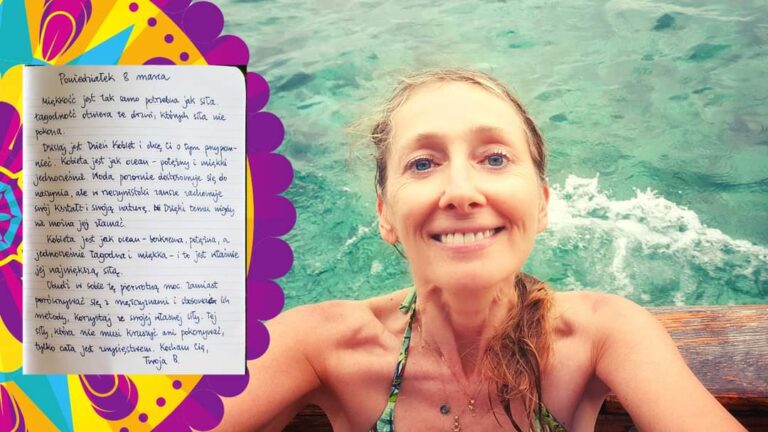 Poniedziałek 8 marca
Miękkość jest tak samo potrzebna jak siła.
Łagodność otwiera te drzwi, których siła nie
pokona.
Dzisiaj jest Dzień Kobiet i chcę ci o tym przypom-
nieć. Kobieta jest jak ocean - potężny i miękki
jednocześnie. Woda pozornie dostosowuje się do
naczynia, ale w rzeczywistości zawsze zachowuje
swój kształt i swoją naturę. Dzięki temu nigdy
nie można jej złamać.
Kobieta jest jak ocean - bezkresna, potężna, a
jednocześnie łagodna i miękka - i to jest właśnie
jej największą siłą.
Obudź w sobie tę pierwotną moc. Zamiast
porównywać się z mężczyznami i stosować ich
metody, korzystaj ze swojej własnej siły. Tej
siły, która nie musi kruszyć ani pokonywać,
tylko cała jest zwycięstwem. Kocham Cię,
Twoja B.